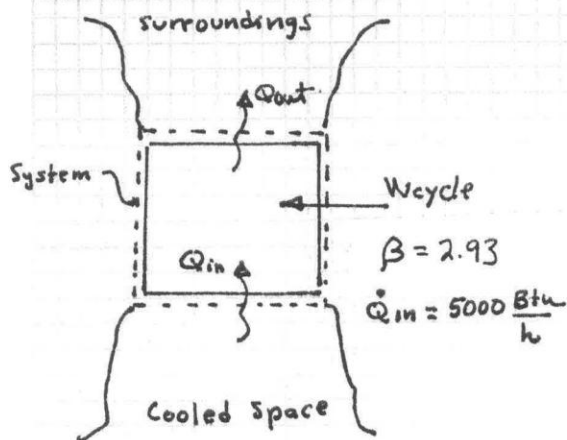 surroundings
Qout
System
Wcycle
Qin
β = 2.93
Q̇in = 5000 Btu/h
Cooled Space